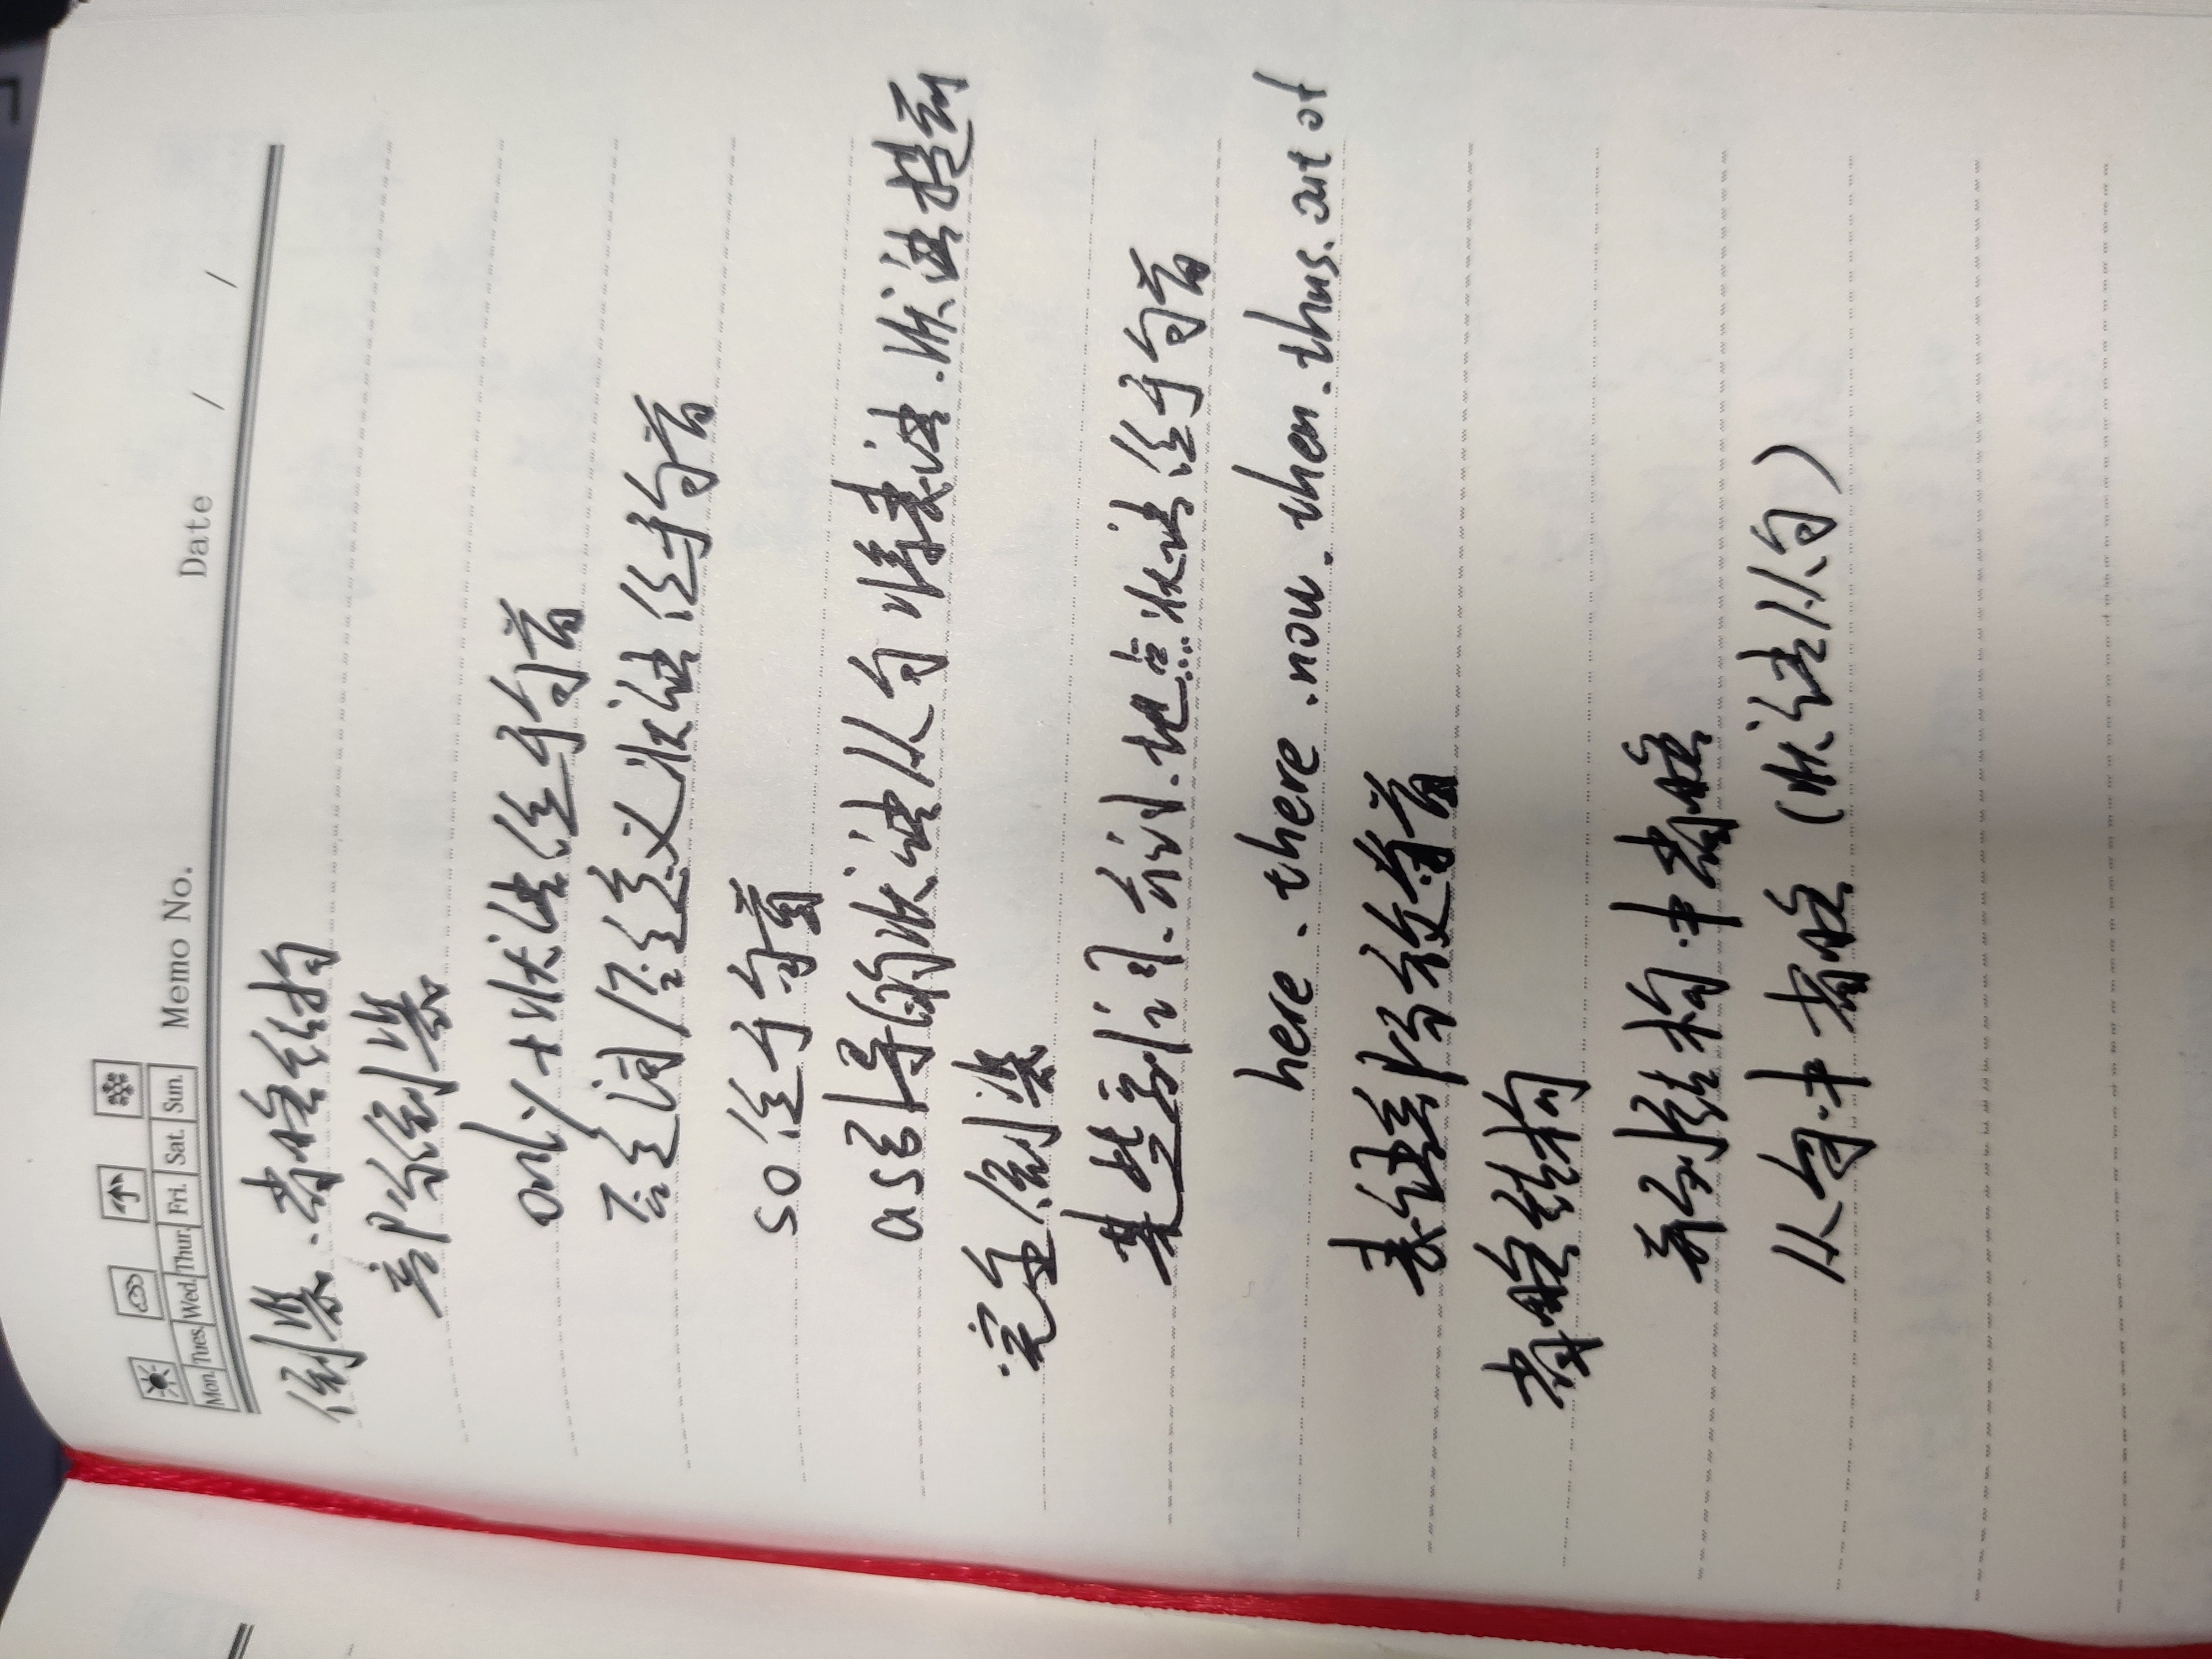 Mon. Tues. Wed. Thur. Fri. Sat. Sun. Memo No. Date / /
倒装.省略结构
部分倒装
only+状语位于句首
否定词/否定意义状语位于句首
so位于句首
as引导的状语从句将表语.状语提到
完全倒装
某些副词.介词.地点状语位于句首
here.there.now.then.thus.out of
表语部分放句首
省略结构
并列结构中省略
从句中省略(状语从句)